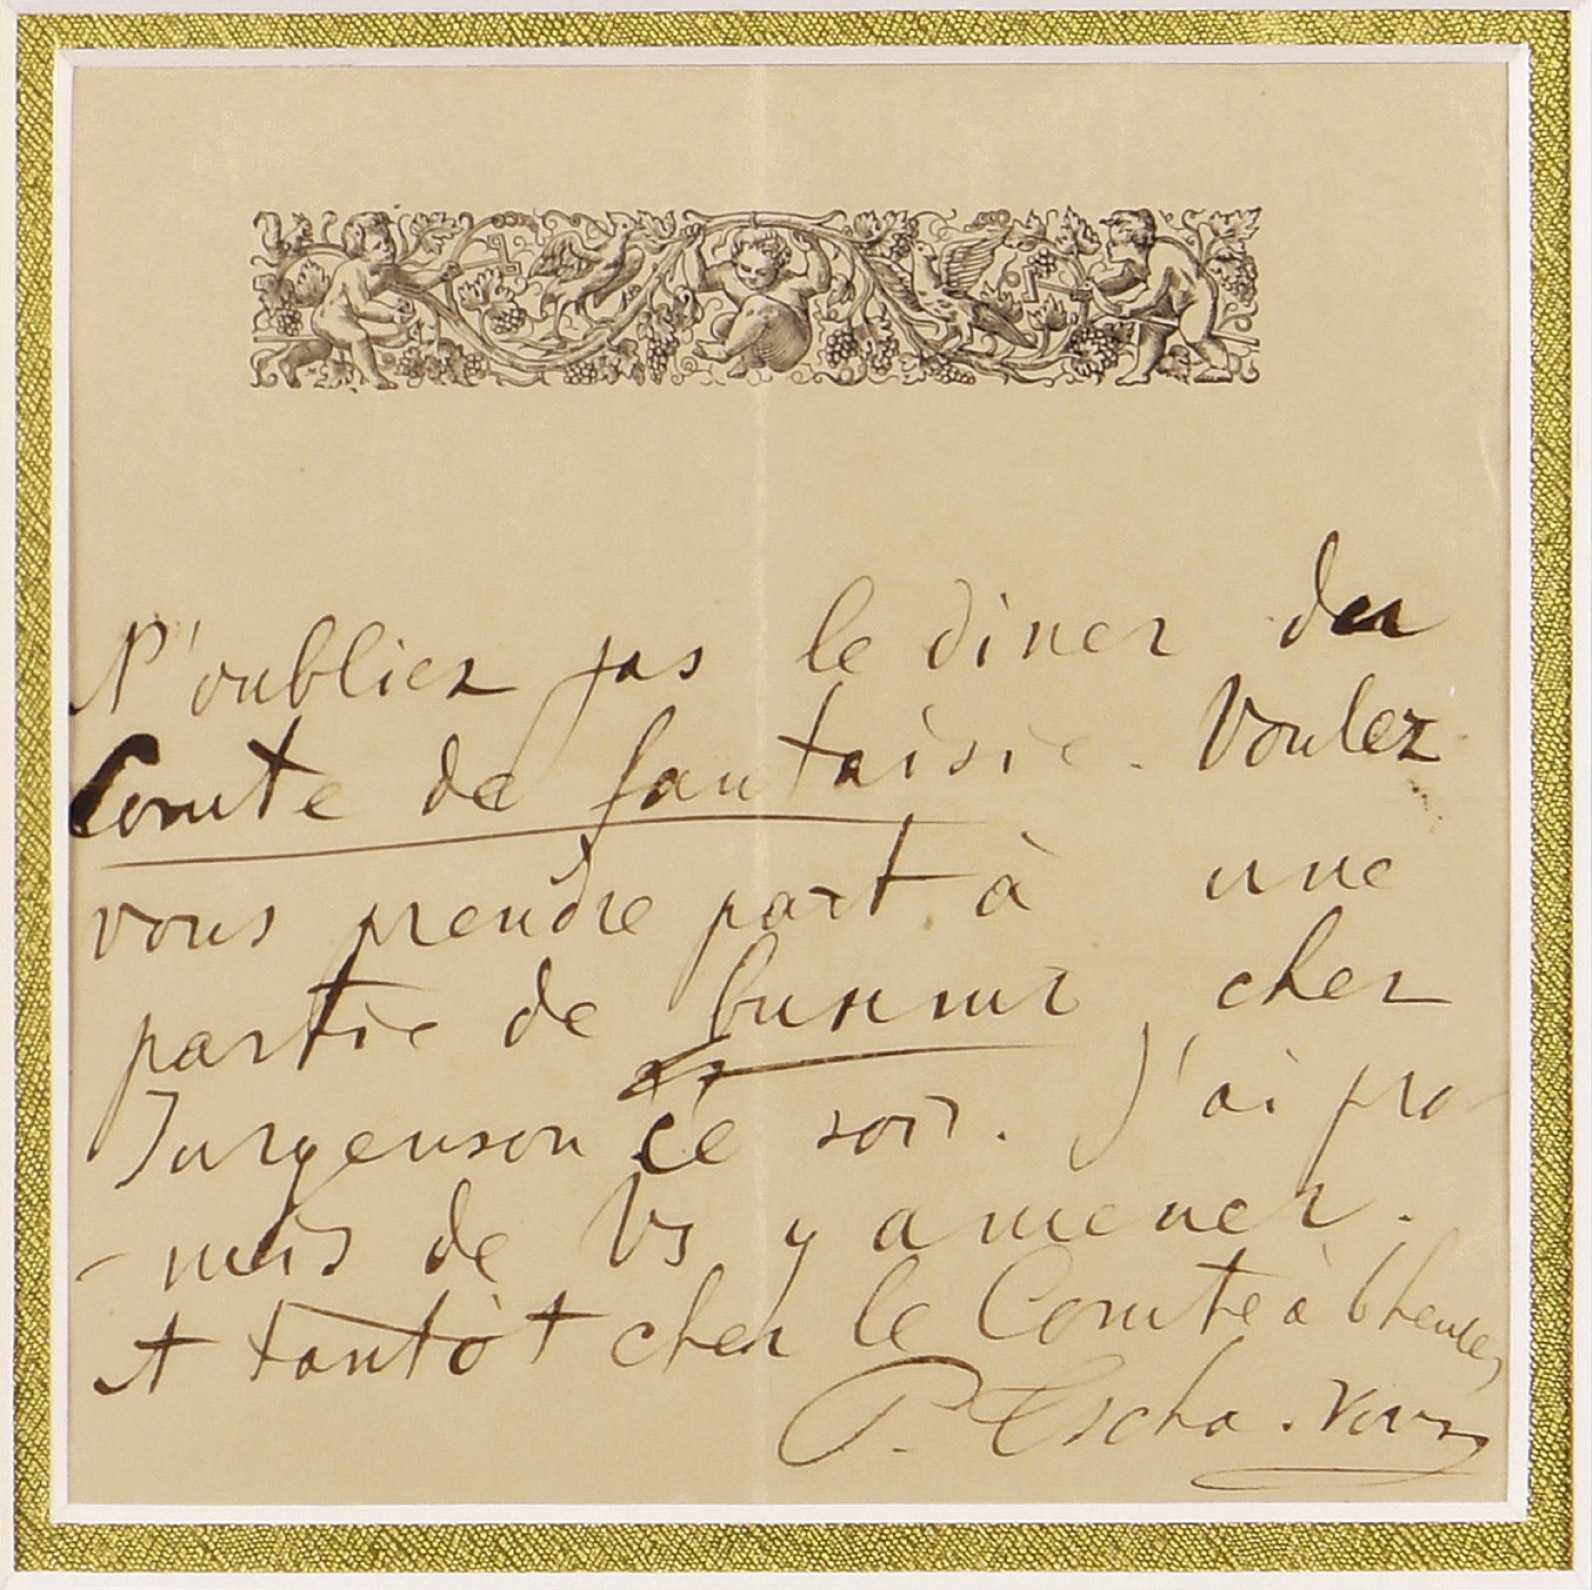 N'oubliez pas le diner du
Comte de fantaisie. Voulez
vous prendre part à une
partie de chez
Jurgenson ce soir. J'ai pro-
-mis de Vs y amener.
et tantôt chez le Comte à 6 heures
P. Tscha.